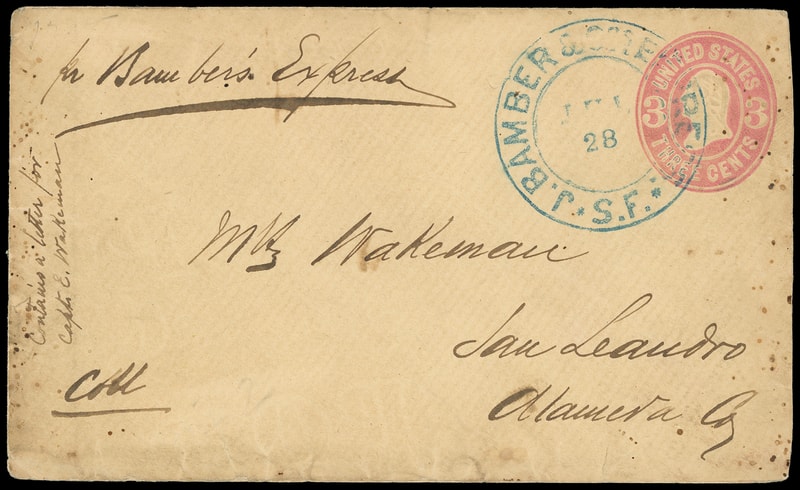 pr Bamber's Express
J. BAMBER & CO'S EXPRESS
S.F.
28
UNITED STATES
3 3
THREE CENTS
Contains a letter for
Capt. E. Wakeman
Mrs Wakeman
San Leandro
Alameda Co
Coll